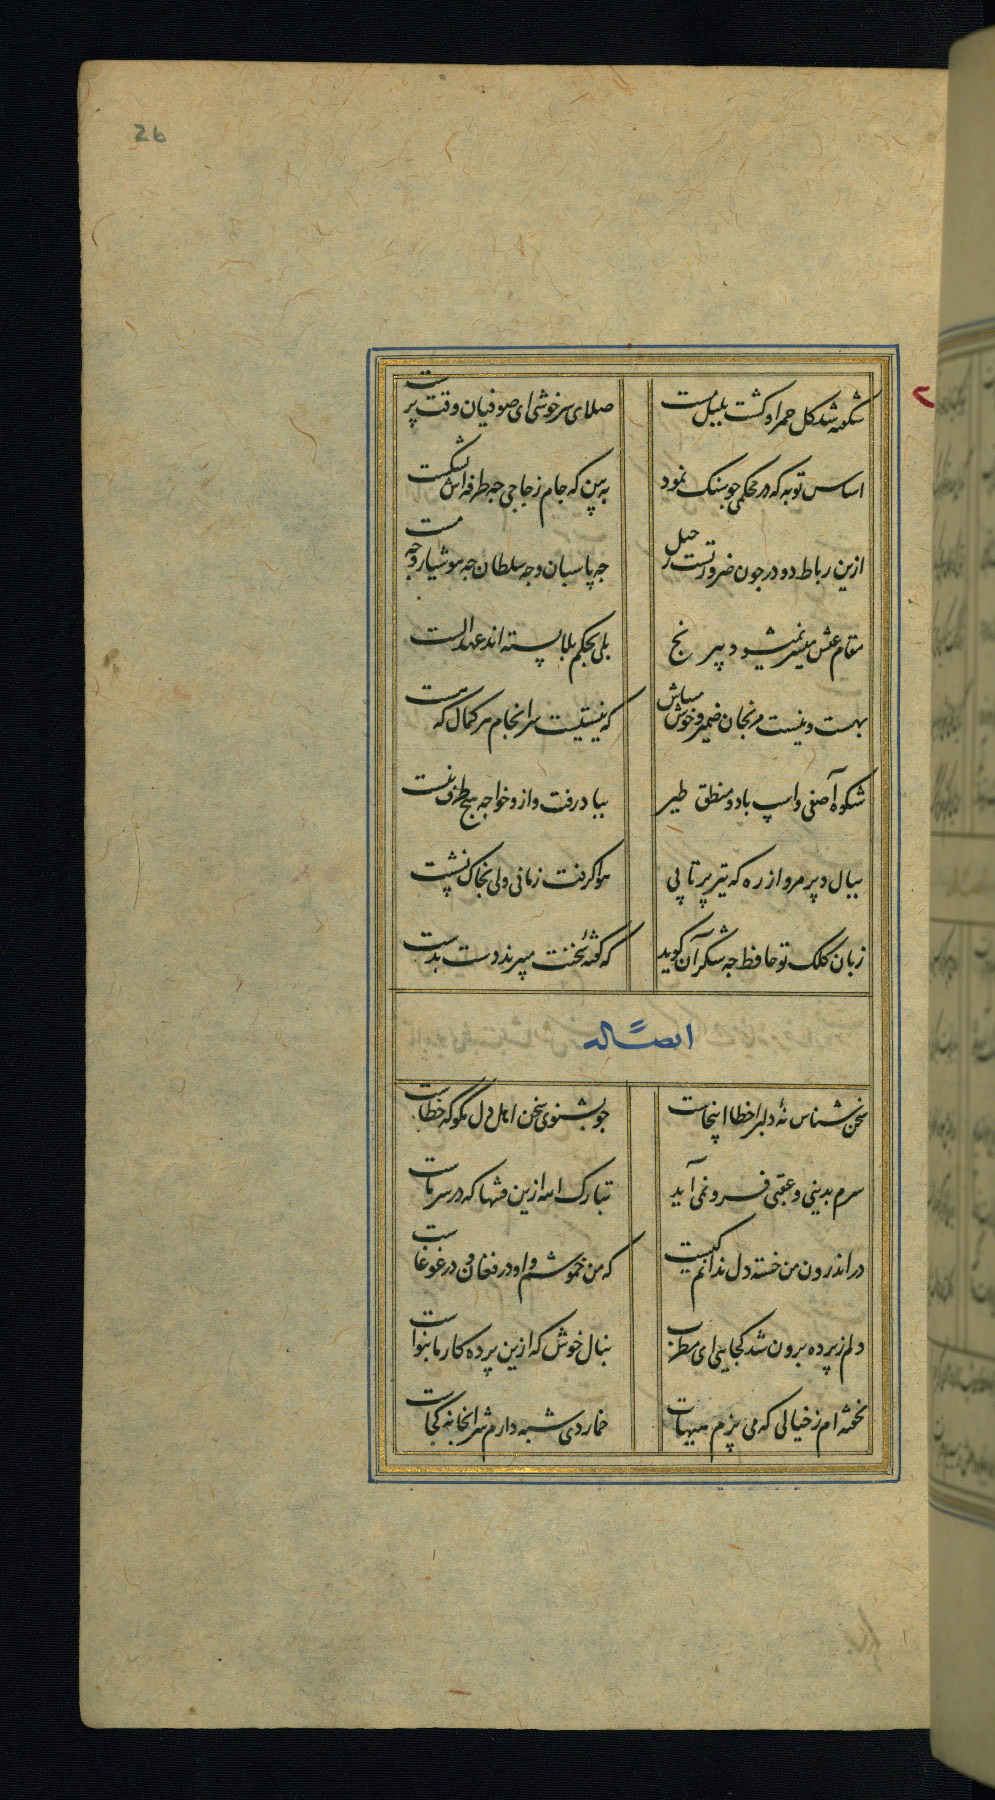 26
شکفته شد کل حمرا و کشت بلبل مست
صلای سرخوشی ای صوفیان وقت پرست
اساس توبه که در محکمی جو سنک نمود
به بین که جام زجاجی جه طرفه اش بشکست
ازین رباط دو در جون ضرورتست رحیل
جه پاسبان و جه سلطان جه هوشیار و جه مست
مقام عیش میسر نمیشود بی رنج
بلی بحکم بلا بسته اند عهد الست
بهست و نیست مرنجان ضمیر و خوش میباش
که نیستیست سرانجام هر کمال که هست
شکوه آصفی و اسپ باد و منطق طیر
بباد رفت و ازو خواجه هیج طرف نبست
ببال و پر مرو از ره که تیر پرتابی
هوا کرفت زمانی ولی بخاک نشست
زبان کلک تو حافظ جه شکر آن کوید
که کفتهٔ سخنت میبرند دست بدست
ایضاً له
سخن شناس نهٔ دلبرا خطا اینجاست
جو بشنوی سخن اهل دل مکو که خطاست
سرم بدینی و عقبی فرو نمی آید
تبارک الله ازین فتنها که در سر ماست
در اندرون من خسته دل ندانم کیست
که من خموشم و او در فغان و در غوغاست
دلم ز پرده برون شد کجایی ای مطرب
بنال خوش که ازین پرده کار ما بنواست
نخفته ام ز خیالی که می پزم هیهات
خمار دی شبه دارم شرابخانه کجاست